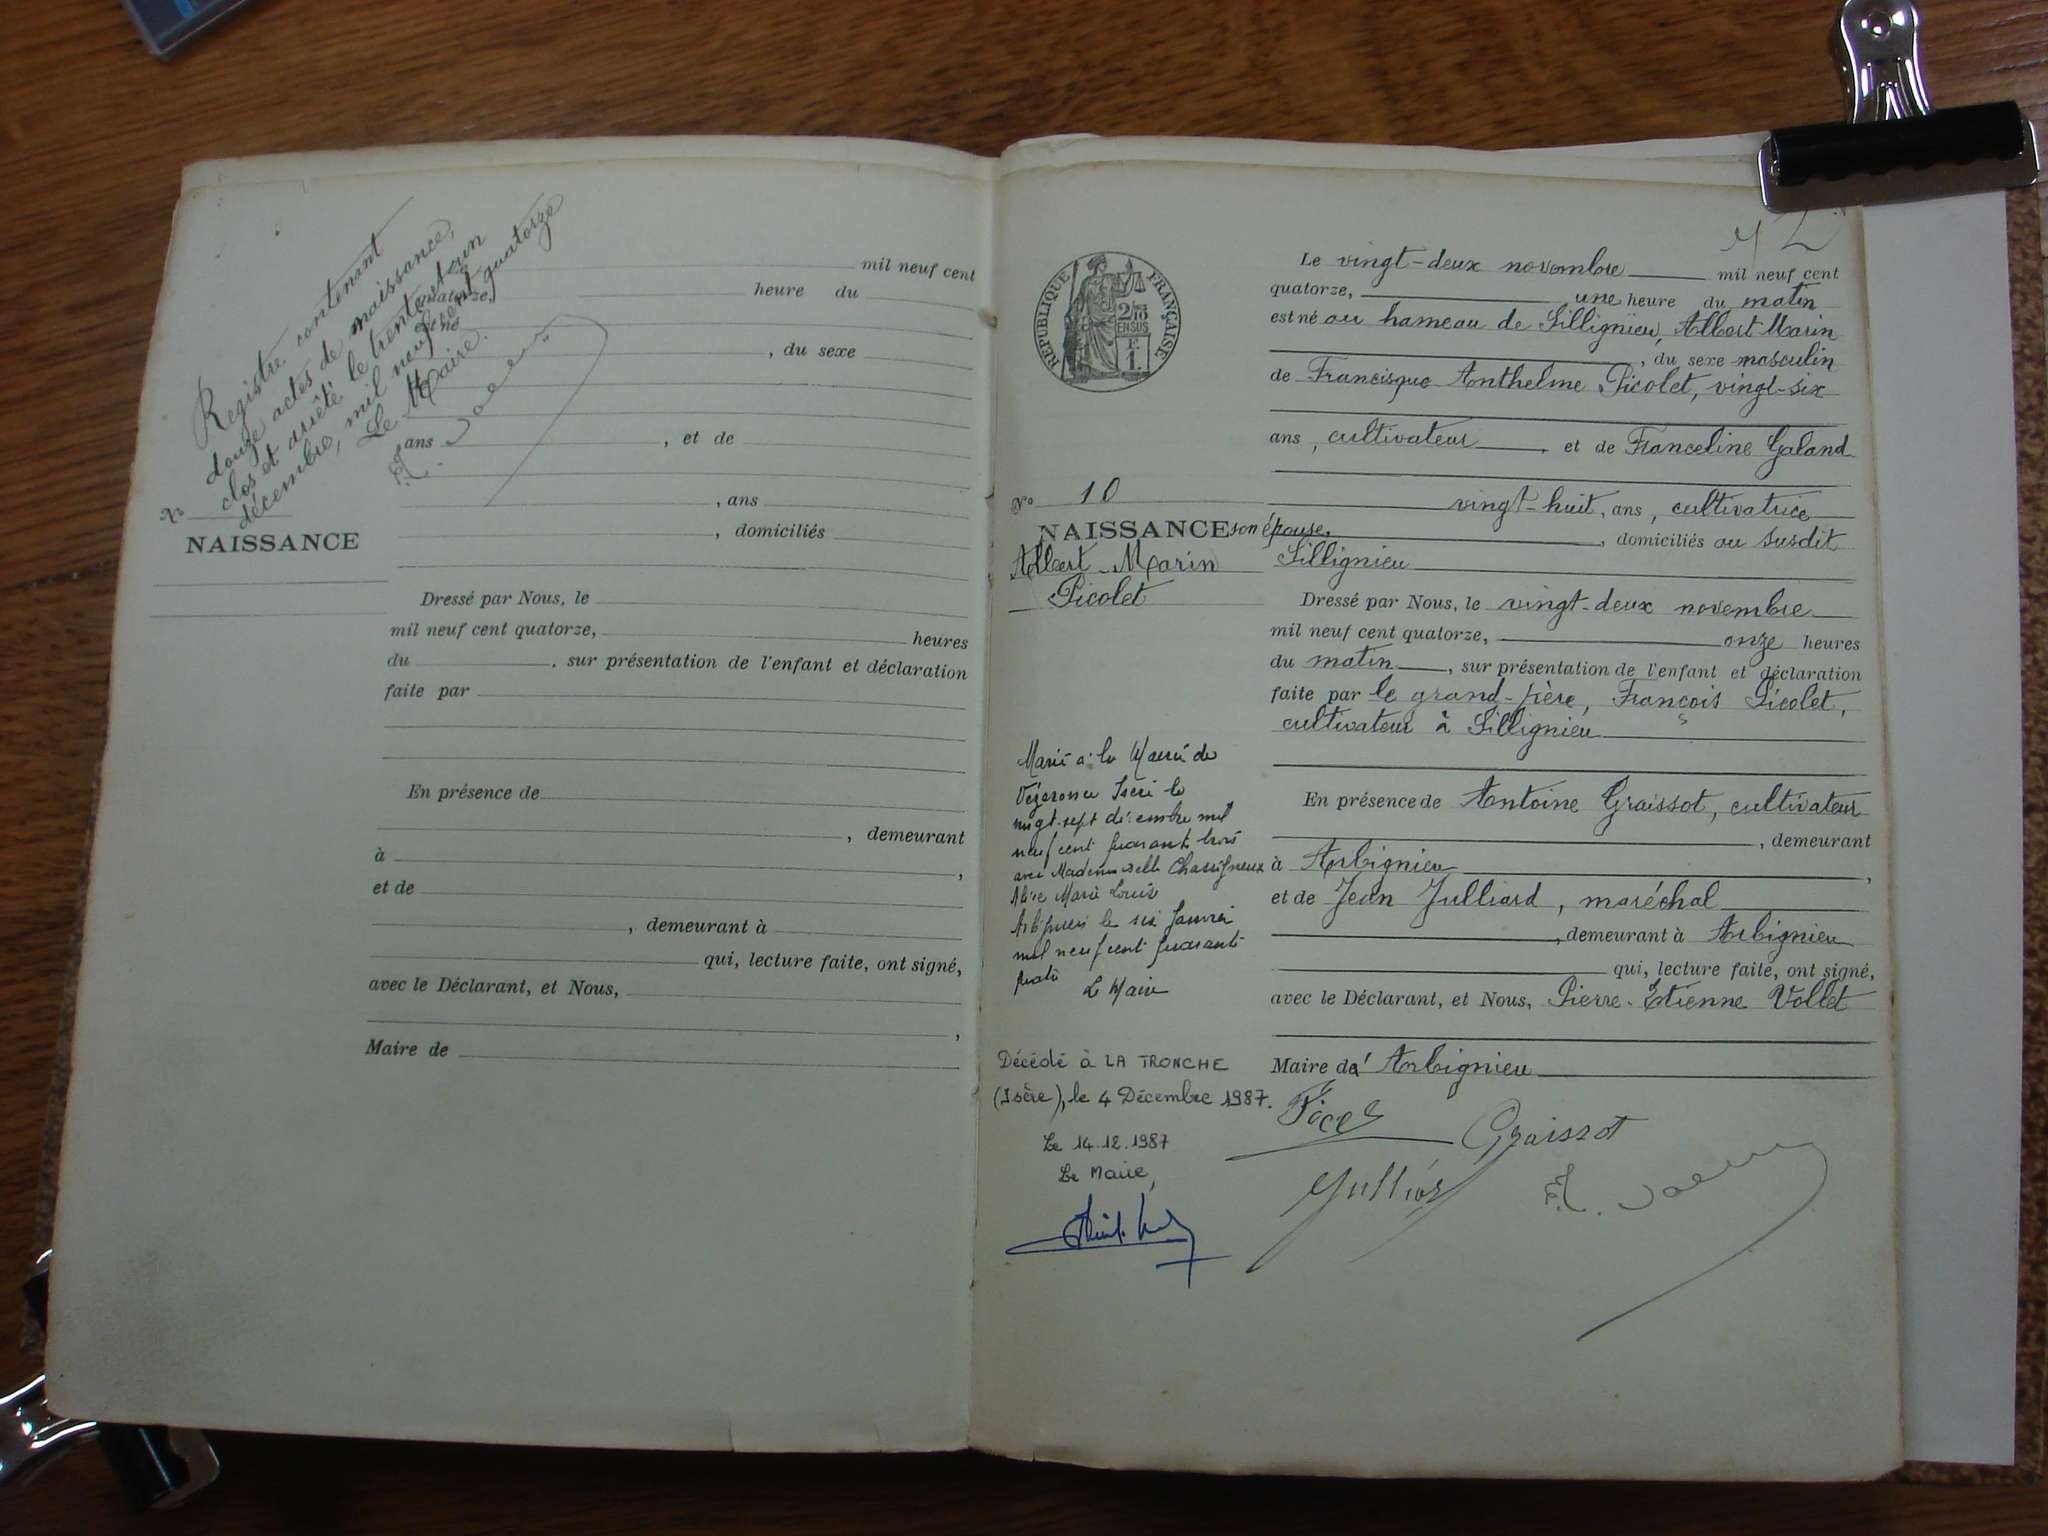 Registre contenant
douze actes de naissance,
clos et arrêté le trente et un
décembre, mil neuf cent quatorze
Le Maire.
No
NAISSANCE
mil neuf cent
quatorze, heure du
est né
, du sexe
ans , et de
, ans
, domiciliés
Dressé par Nous, le
mil neuf cent quatorze, heures
du , sur présentation de l'enfant et déclaration
faite par
En présence de
, demeurant
à ,
et de
, demeurant à
qui, lecture faite, ont signé,
avec le Déclarant, et Nous,
,
Maire de
RÉPUBLIQUE FRANÇAISE
2/10
EN SUS
1
No 10
NAISSANCE
Albert-Marin
Picolet
Marié à la Mairie de
Vézeronce Isère le
vingt-sept décembre mil
neuf cent quarante trois
avec Mademoiselle Chassigneux
Alice Marie Louise
Arbignieu le six Janvier
mil neuf cent quarante
quatre
Le Maire
Décédé à LA TRONCHE
(Isère), le 4 Décembre 1987.
Le 14.12.1987
Le Maire,
Le vingt-deux novembre mil neuf cent
quatorze, une heure du matin
est né au hameau de Sillignieu, Albert Marin
, du sexe masculin
de Francisque Anthelme Picolet, vingt-six
ans, cultivateur , et de Franceline Galand
vingt-huit, ans, cultivatrice
son épouse, , domiciliés au susdit
Sillignieu
Dressé par Nous, le vingt-deux novembre
mil neuf cent quatorze, onze heures
du matin , sur présentation de l'enfant et déclaration
faite par le grand-père, François Picolet,
cultivateur à Sillignieu
En présence de Antoine Graissot, cultivateur
, demeurant
à Arbignieu ,
et de Jean Julliard, maréchal
, demeurant à Arbignieu
qui, lecture faite, ont signé,
avec le Déclarant, et Nous, Pierre-Etienne Vollet
Maire d' Arbignieu
Graissot